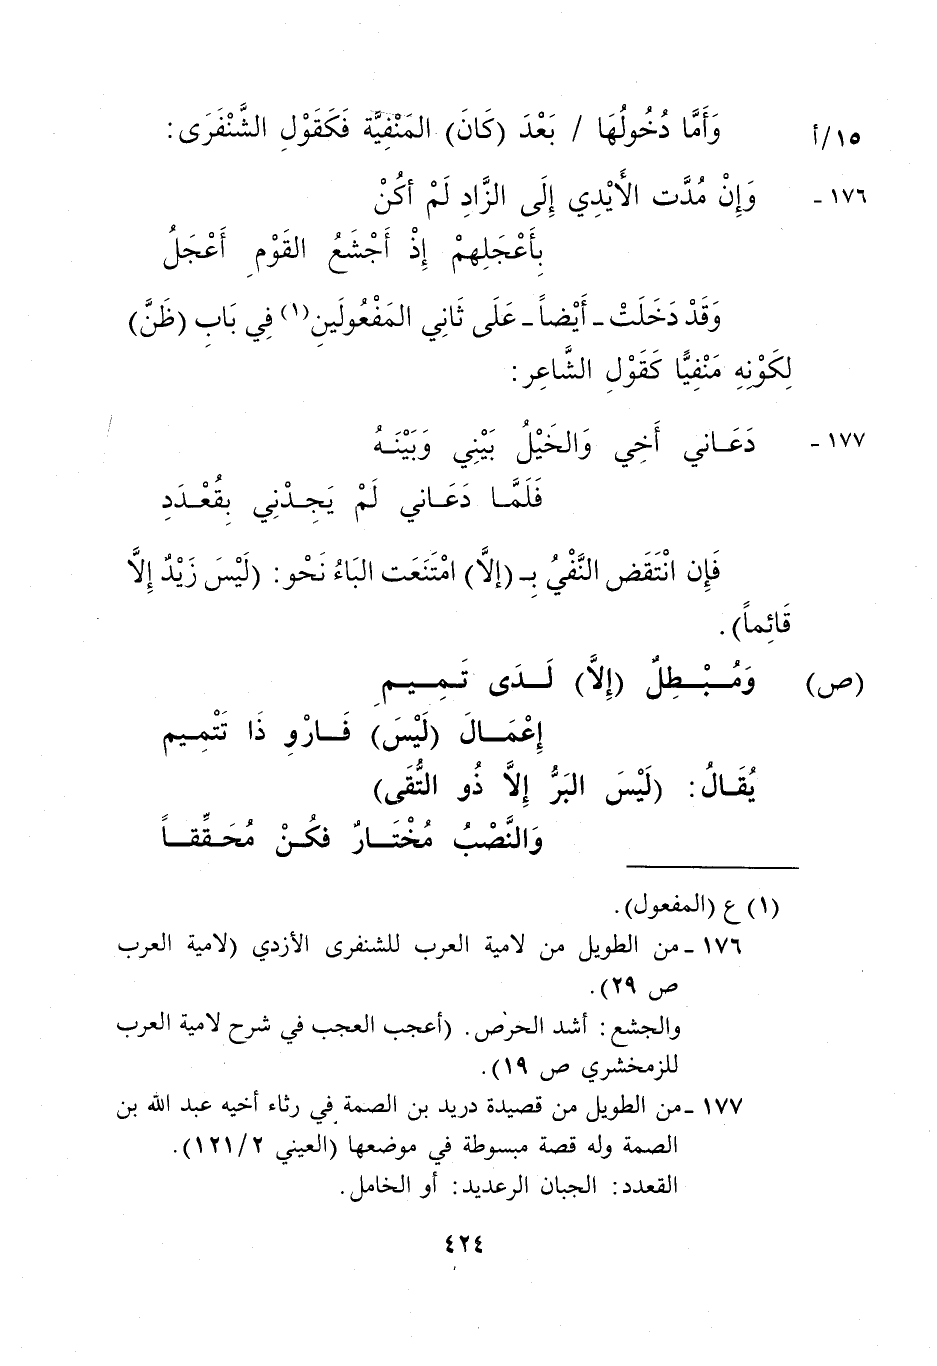 ١٥/أ وَأَمَّا دُخُولُهَا / بَعْدَ (كَانَ) المَنْفِيَّة فَكَقَوْلِ الشَّنْفَرَى:
١٧٦ - وَإِنْ مُدَّت الأَيْدِي إِلَى الزَّادِ لَمْ أكُنْ
بِأَعْجَلِهِمْ إِذْ أَجْشَعُ القَوْمِ أَعْجَلُ
وَقَدْ دَخَلَتْ - أَيْضاً - عَلَى ثَانِي المَفْعُولَينِ(١) فِي بَابِ (ظَنَّ)
لِكَوْنِهِ مَنْفِيًّا كَقَوْلِ الشَّاعِر:
١٧٧ - دَعَـانِي أَخِي وَالخَيْلُ بَيْنِي وَبَيْنَـهُ
فَلَمَّـا دَعَـانِي لَمْ يَجِـدْنِي بِقُعْـدَدِ
فَإِن انْتَقَضَ النَّفْيُ بِـ (إلاَّ) امْتَنَعَت البَاءُ نَحْو: (لَيْسَ زَيْدٌ إِلاَّ
قَائِماً).
(ص) وَمُـبْـطِلٌ (إِلاَّ) لَـدَى تَـمِـيـمِ
إِعْمَـالَ (لَيْسَ) فَـارْوِ ذَا تَتْمِـيم
يُقَـالُ: (لَيْسَ البَرُّ إِلاَّ ذُو التُّقَى)
وَالنَّصْبُ مُخْتَـارٌ فكُـنْ مُحَقِّقـاً
(١) ع (المفعول).
١٧٦ - من الطويل من لامية العرب للشنفرى الأزدي (لامية العرب
ص ٢٩).
والجشع: أشد الحرص. (أعجب العجب في شرح لامية العرب
للزمخشري ص ١٩).
١٧٧ - من الطويل من قصيدة دريد بن الصمة في رثاء أخيه عبد الله بن
الصمة وله قصة مبسوطة في موضعها (العيني ١٢١/٢).
القعدد: الجبان الرعديد: أو الخامل.
٤٢٤